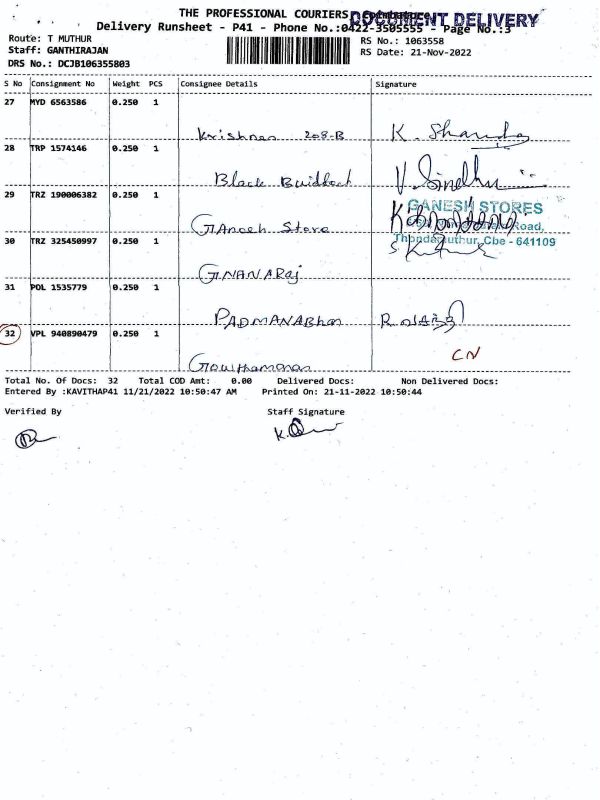 THE PROFESSIONAL COURIERS
DOCUMENT DELIVERY
Delivery Runsheet - P41 - Phone No.:0422-3505555 - Page No.:3
Route: T MUTHUR
RS No.: 1063558
Staff: GANTHIRAJAN
RS Date: 21-Nov-2022
DRS No.: DCJB106355803
S No Consignment No Weight PCS Consignee Details Signature
27 MYD 6563586 0.250 1
Krishnan 208-B K. Sharmila
28 TRP 1574146 0.250 1
Black V. Sindhu
29 TRZ 190006382 0.250 1
GANESH STORES
Road,
GAnesh Store
Thondamuthur, Cbe - 641109
30 TRZ 325450997 0.250 1
GNANARaj
31 POL 1535779 0.250 1
PADMANABhan
32 VPL 940890479 0.250 1
CN
Gowthamanan
Total No. Of Docs: 32 Total COD Amt: 0.00 Delivered Docs: Non Delivered Docs:
Entered By :KAVITHAP41 11/21/2022 10:50:47 AM Printed On: 21-11-2022 10:50:44
Verified By Staff Signature